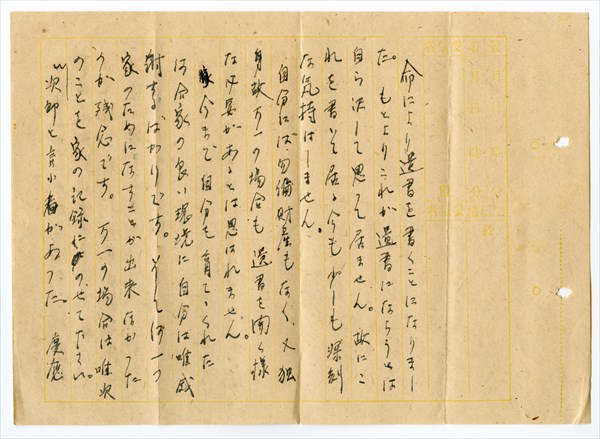 命により遺書を書くことになりまし
た。もとよりこれが遺書にならうとは
自ら決して思って居ません。故にこ
れを書いて居る今も少しも深刻
な気持はしません。
自分には勿論財産もなく、又独
身故万一の場合も遺書を開く様
な必要があるとは思はれません。
今まで自分を育てゝくれた
合家の良い環境に自分は唯感
謝するばかりです。そして何一つ
家のためになすことが出来なかった
のが残念です。万一の場合は唯次
のことを家の記録にのせて下さい。
次郎と言ふ者があった。慶應